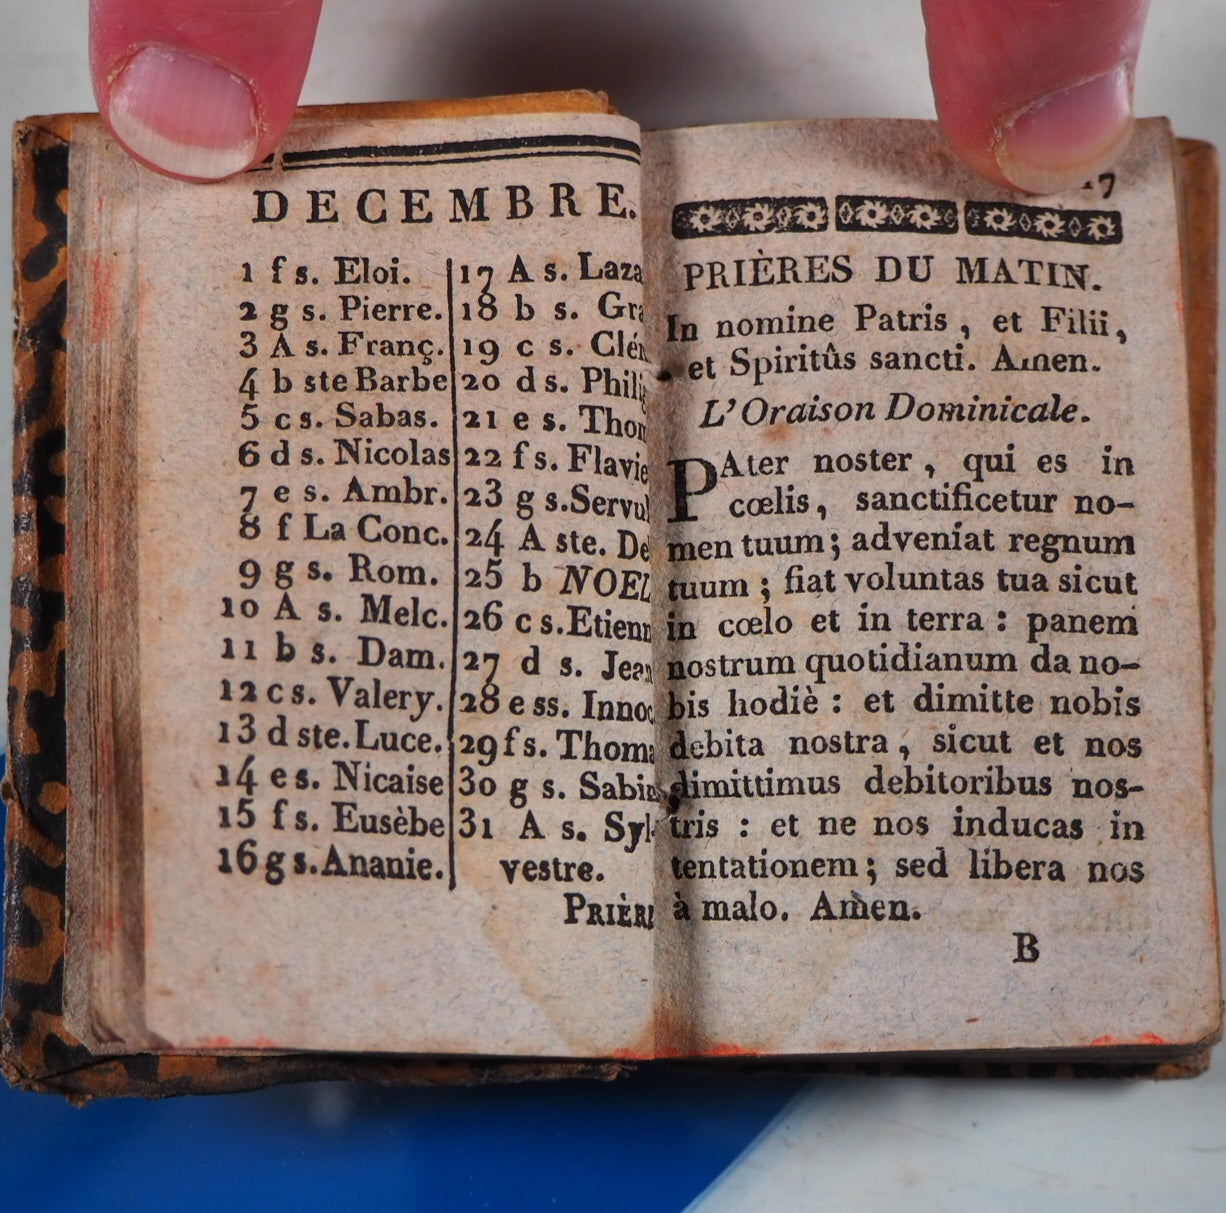 DECEMBRE.
1 f s. Eloi.
2 g s. Pierre.
3 A s. Franç.
4 b ste Barbe
5 c s. Sabas.
6 d s. Nicolas
7 e s. Ambr.
8 f La Conc.
9 g s. Rom.
10 A s. Melc.
11 b s. Dam.
12 c s. Valery.
13 d ste. Luce.
14 e s. Nicaise
15 f s. Eusèbe
16 g s. Ananie.
17 A s. Laza
18 b s. Gra
19 c s. Clém
20 d s. Phili
21 e s. Thom
22 f s. Flavie
23 g s. Servul
24 A ste. De
25 b NOEL
26 c s. Etienn
27 d s. Jean
28 e ss. Innoc
29 f s. Thoma
30 g s. Sabin
31 A s. Syl-
vestre.
PRIÈRE
17
PRIÈRES DU MATIN.
In nomine Patris, et Filii,
et Spiritûs sancti. Amen.
L'Oraison Dominicale.
PAter noster, qui es in
cœlis, sanctificetur no-
men tuum; adveniat regnum
tuum; fiat voluntas tua sicut
in cœlo et in terra : panem
nostrum quotidianum da no-
bis hodiè : et dimitte nobis
debita nostra, sicut et nos
dimittimus debitoribus nos-
tris : et ne nos inducas in
tentationem; sed libera nos
à malo. Amen.
B